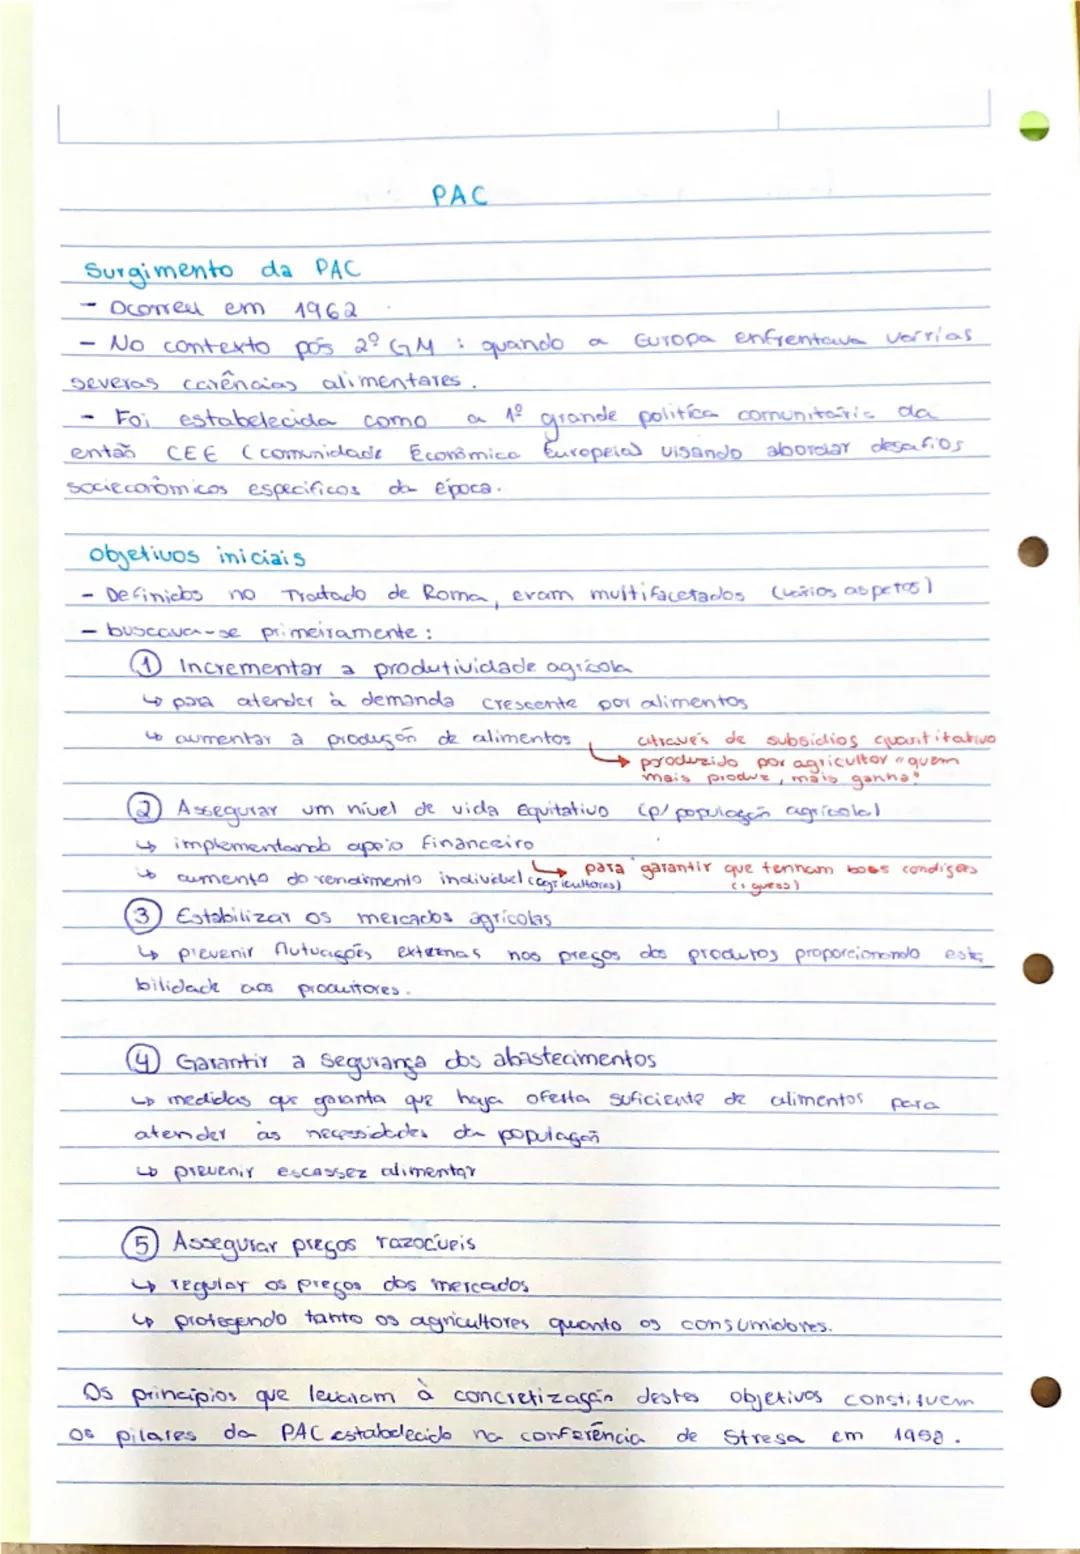 PAC
Surgimento da PAC
- Ocorreu em 1962
- No contexto pós 2º GM : quando a Europa enfrentava várrias
severas carências alimentares.
- Foi estabelecida como a 1º grande política comunitária da
então CEE (comunidade Económica Europeia) visando abordar desafios
socieconômicos especificos da época.
objetivos iniciais
- Definidos no Tratado de Roma, eram multifacetados (vários aspetos)
- buscava-se primeiramente :
① Incrementar a produtividade agrícola
↳ para atender à demanda crescente por alimentos
↳ aumentar a produção de alimentos
↳ através de subsídios quantitativo
produzido por agricultor "quem
mais produz, mais ganha"
② Assegurar um nível de vida Equitativo (p/ população agrícola)
↳ implementando apoio financeiro
↳ para garantir que tenham boas condições
(i guess)
↳ aumento do rendimento individual (agricultores)
③ Estabilizar os mercados agrícolas
↳ prevenir flutuações externas nos preços dos produtos proporcionando esta
bilidade aos produtores.
④ Garantir a segurança dos abastecimentos
↳ medidas que garanta que haja oferta suficiente de alimentos para
atender às necessidades da população
↳ prevenir escassez alimentar
⑤ Assegurar preços razoáveis
↳ regular os preços dos mercados
↳ protegendo tanto os agricultores quanto os consumidores.
Os princípios que levaram à concretização destes objetivos constituem
os pilares da PAC estabelecido na conferência de Stresa em 1958.